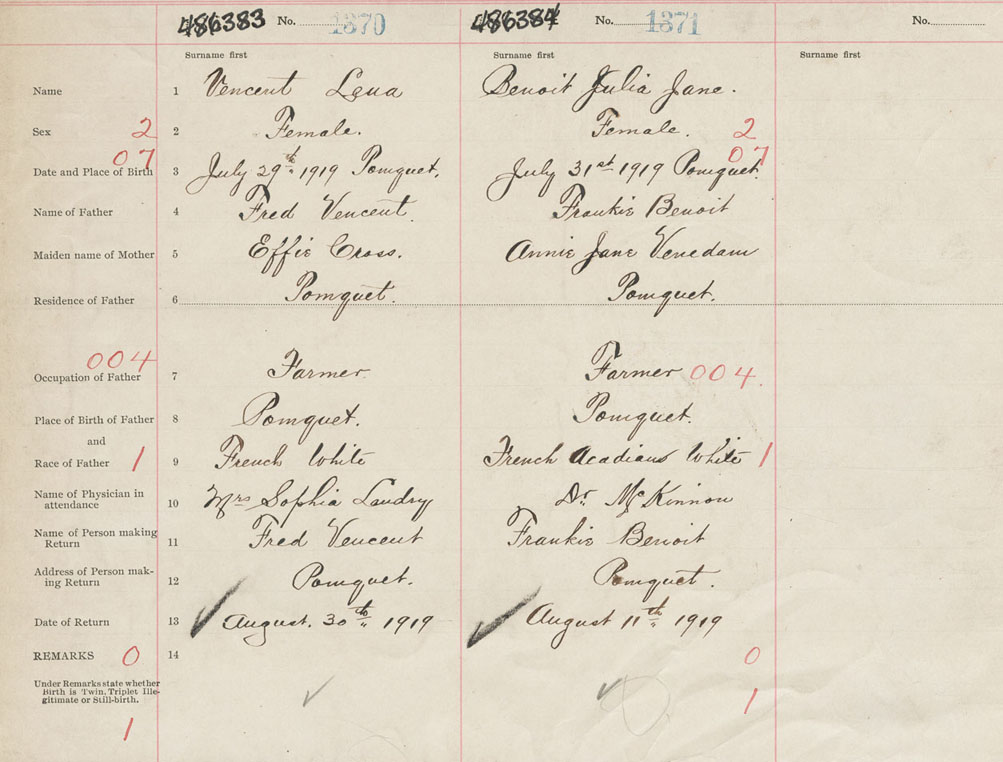 486383 No. 1370 486384 No. 1371 No.
Surname first Surname first Surname first
Name 1 Vencent Lena Benoit Julia Jane.
Sex 2 2 Female. Female. 2
07 07
Date and Place of Birth 3 July 29th 1919 Pomquet. July 31st 1919 Pomquet.
Name of Father 4 Fred Vencent. Frankie Benoit
Maiden name of Mother 5 Effie Cross. Annie Jane Venedam
Residence of Father 6 Pomquet. Pomquet.
004
Occupation of Father 7 Farmer Farmer 004.
Place of Birth of Father 8 Pomquet. Pomquet.
and
Race of Father 1 9 French White French Acadians White 1
Name of Physician in
attendance 10 Mrs Sophia Landry Dr. McKinnon
Name of Person making
Return 11 Fred Vencent Frankie Benoit
Address of Person mak-
ing Return 12 Pomquet. Pomquet.
Date of Return 13 August. 30th 1919 August 11th 1919
REMARKS 0 14 0
Under Remarks state whether
Birth is Twin, Triplet Ille-
gitimate or Still-birth.
1 1